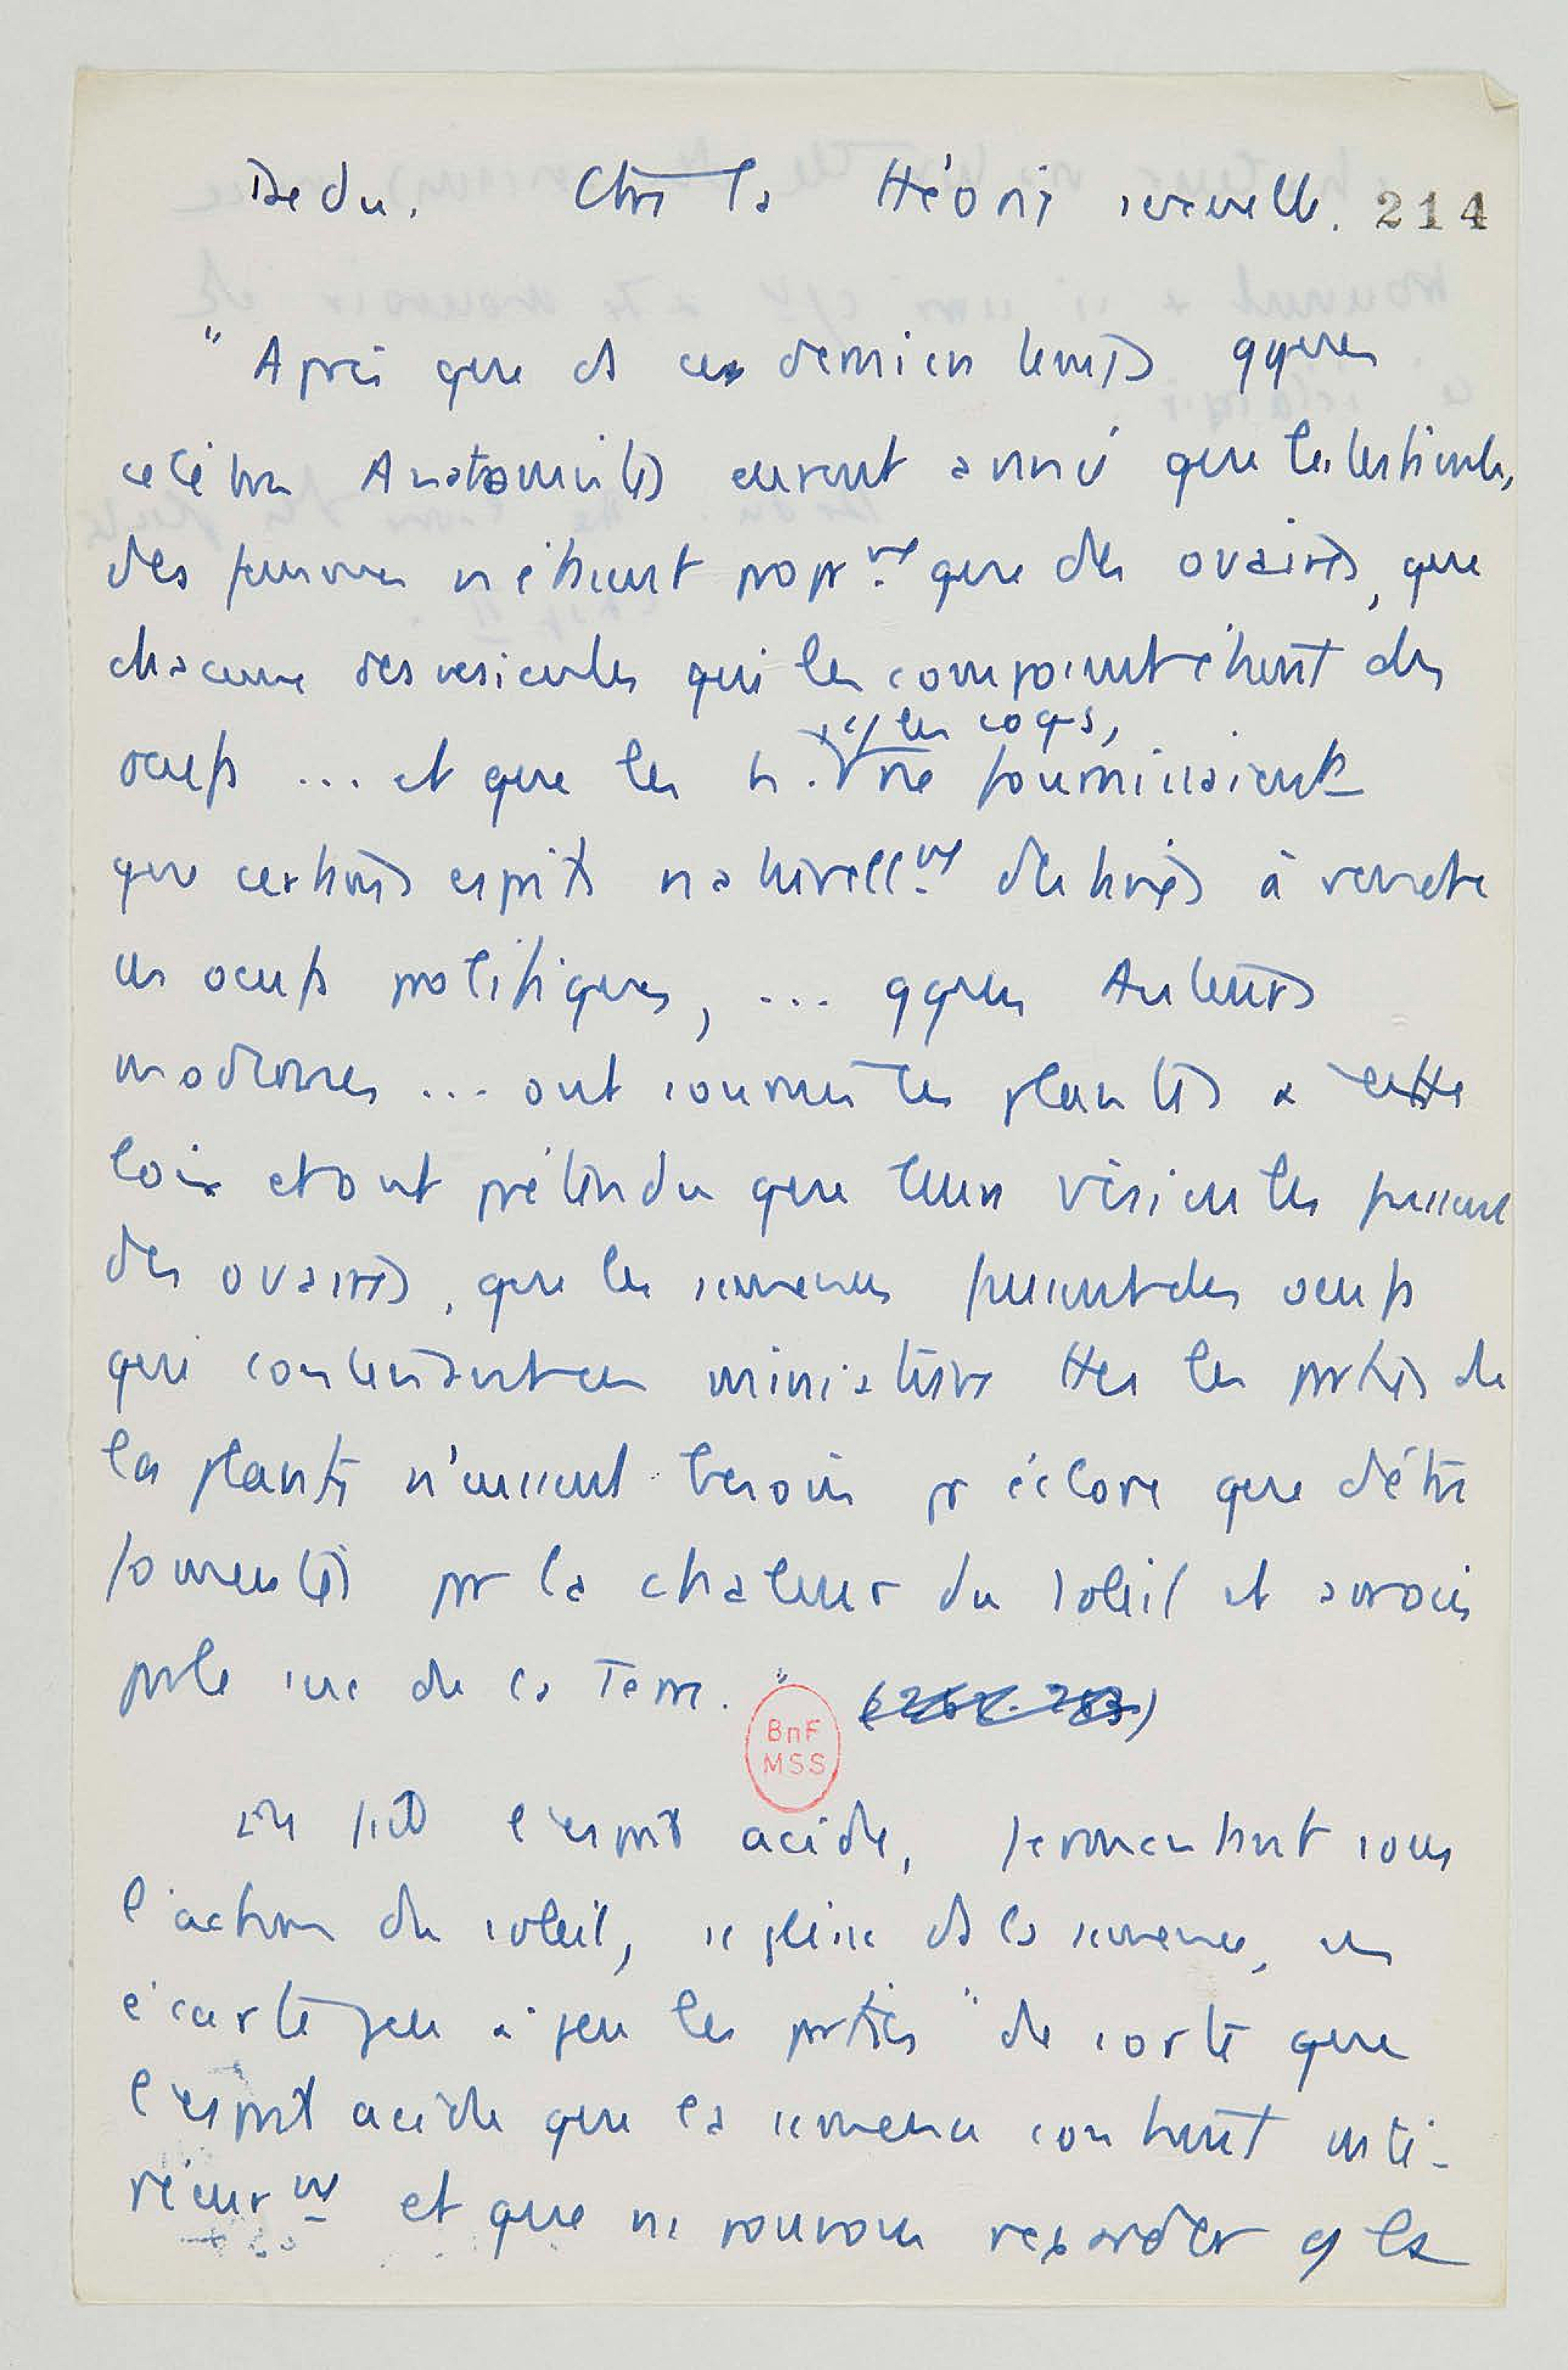 Dedu. Ctre la théorie sexuelle. 214
" Après que ds ces derniers temps qques
célèbres Anatomistes eurent assuré que les testicules
des femmes n'étaient propr.mt que des ovaires, que
chacune des vésicules qui les composaient étaient des
oeufs ... et que les h. cô les coqs, ne fournissaient
que certains esprits naturell.mt destinés à rendre
ces oeufs prolifiques, ... qques Auteurs
modernes ... ont soumis les plantes à cette
loi et ont prétendu que leurs vésicules fussent
des ovaires, que les semences fussent des oeufs
qui contenant en miniature ttes les prties de
la plante n'eussent besoin pr éclore que d'être
fomentés pr la chaleur du soleil et arrosés
pr le suc de la Terre. "
En fait l'esprit acide, fermentant sous
l'action du soleil, se glisse ds la semence, en
écarte peu à peu les prties " de sorte que
l'esprit acide que la semence contient inté-
rieur mt et que ns pouvons regarder cô la
BnF
MSS